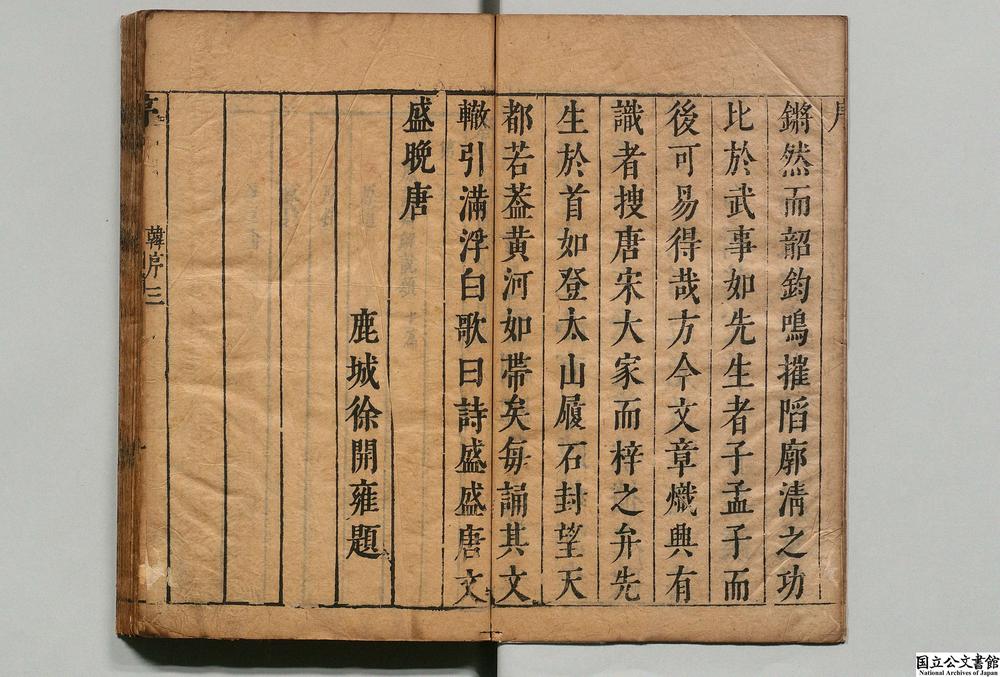 鏘然而韶鈞鳴摧陷廓淸之功
比於武事如先生者子孟子而
後可易得哉方今文章熾興有
識者搜唐宋大家而梓之弁先
生於首如登太山履石封望天
都若葢黃河如帶矣每誦其文
轍引滿浮白歌曰詩盛盛唐文
盛晚唐
鹿城徐開雍題
韓序三
国立公文書館
National Archives of Japan